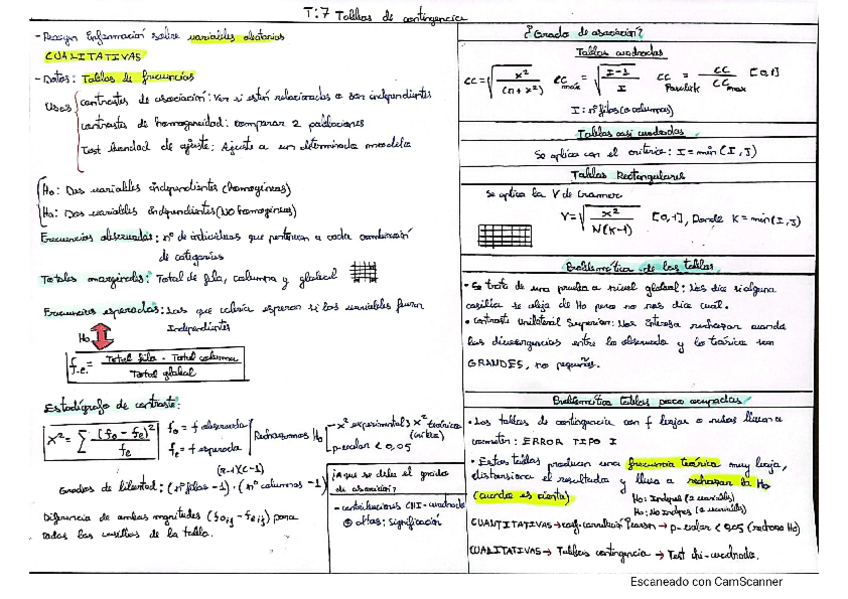 T:7 Tablas de contingencia
- Recogen Información sobre variables aleatorias
CUALITATIVAS
- Datos: Tablas de frecuencias
Usos
contrastes de asociación: Ver si están relacionadas o son independientes
contrastes de homogeneidad: comparar 2 poblaciones
Test bondad de ajuste: Ajuste a un determinado modelo
Ho: Dos variables independientes (homogéneas)
Ha: Dos variables independientes (NO homogéneas)
Frecuencias observadas: nº de individuos que pertenecen a cada combinación
de categorías
Totales marginales: Total de fila, columna y global
Frecuencias esperadas: Las que cabría esperar si las variables fueran
Independientes
Ho
f.e. = Total fila · Total columna
Total global
Estadígrafo de contraste:
X² = Σ (fo - fe)² / fe
fo = f observada
fe = f esperada
Rechazamos Ho
- x² experimental > x² teórica
(crítica)
- p-valor < 0,05
(r-1)(c-1)
Grados de libertad: (nº filas -1) · (nº columnas -1)
Diferencia de ambas magnitudes (foij - feij) para
todas las casillas de la tabla.
¿A que se debe el grado
de asociación?
- contribuciones CHI-cuadrado
altas: significación
¿Grado de asociación?
Tablas cuadradas
CC = √ x² / (n + x²)
CC máx = √ I-1 / I
CC = CC / CC max [0,1]
I: nº filas (o columnas)
Tablas casi cuadradas
Se aplica con el criterio: I = min (I, J)
Tablas Rectangulares
Se aplica la V de Cramer
V = √ x² / N(K-1) [0,1], Donde K = min (I, J)
Problemática de las tablas
• Se trata de una prueba a nivel global: Nos dice si alguna
casilla se aleja de Ho pero no nos dice cuál.
• contraste Unilateral Superior: Nos interesa rechazar cuando
las divergencias entre lo observado y lo teórico son
GRANDES, no pequeñas.
Problemática tablas poco ocupadas
• Las tablas de contingencia con f bajas o nulas llevan a
cometer: ERROR TIPO I
• Estas tablas producen una frecuencia teórica muy baja,
distorsiona el resultado y lleva a rechazar la Ho
(cuando es cierta)
Ho: Indepes (2 variables)
Ho: No Indepes (2 variables)
CUANTITATIVAS → coef. correlación Pearson → p-valor < 0,05 (rechazo Ho)
CUALITATIVAS → Tablas contingencia → Test chi-cuadrado.
Escaneado con CamScanner